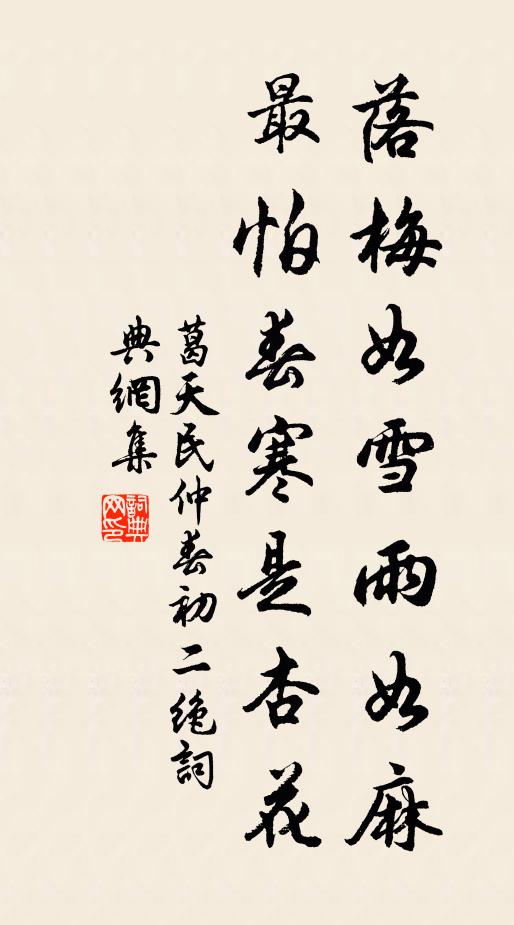 落梅如雪雨如麻
最怕春寒是杏花
葛天民仲春初二絶詞
典網集
詞典網印